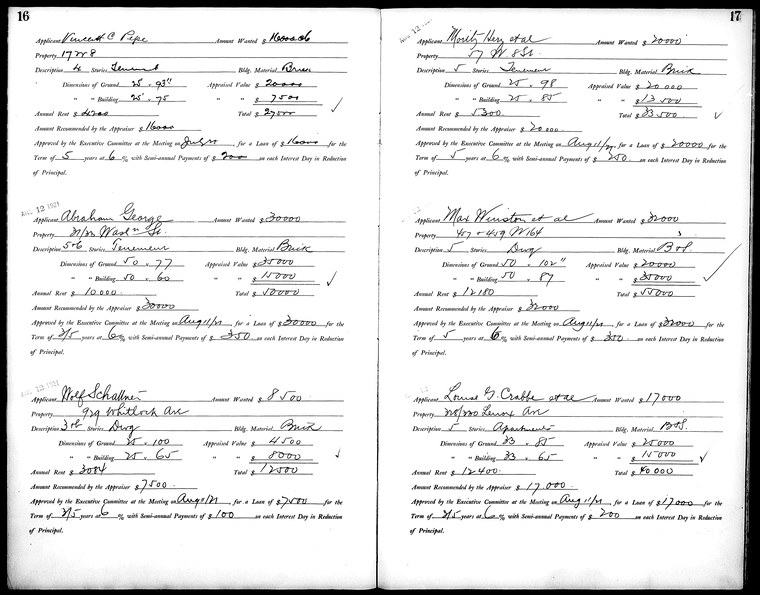 16
Applicant Vincent C Pepe Amount Wanted $ 16000
Property 17 W 8
Description 4 Stories Tenement Bldg. Material Brick
Dimensions of Ground 25 × 93" Appraised Value $ 20000
" " Building 25 × 75 " " $ 7500
Annual Rent $ 4200 Total $ 27500
Amount Recommended by the Appraiser $ 16000
Approved by the Executive Committee at the Meeting on July for a Loan of $ 16000 for the
Term of 5 years at 6 % with Semi-annual Payments of $ 200 on each Interest Day in Reduction
of Principal.
AUG 12 1921
Applicant Abraham George Amount Wanted $ 30000
Property Wash'n St.
Description 5+6 Stories Tenement Bldg. Material Brick
Dimensions of Ground 50 × 77 Appraised Value $ 35000
" " Building 50 × 60 " " $ 15000
Annual Rent $ 10000 Total $ 50000
Amount Recommended by the Appraiser $ 30000
Approved by the Executive Committee at the Meeting on Aug 11/21 for a Loan of $ 30000 for the
Term of 3/5 years at 6 % with Semi-annual Payments of $ 350 on each Interest Day in Reduction
of Principal.
AUG 12 1921
Applicant Wolf Amount Wanted $ 8500
Property 929 Whitlock Ave
Description 3 Stories Dwg Bldg. Material Brick
Dimensions of Ground 25 × 100 Appraised Value $ 4500
" " Building 25 × 65 " " $ 8000
Annual Rent $ 3084 Total $ 12500
Amount Recommended by the Appraiser $ 7500
Approved by the Executive Committee at the Meeting on Aug 11/21 for a Loan of $ 7500 for the
Term of 3/5 years at 6 % with Semi-annual Payments of $ 100 on each Interest Day in Reduction
of Principal.
17
AUG 12 1921
Applicant Moritz Herz et al Amount Wanted $ 20000
Property 57 W 8 St.
Description 5 Stories Tenement Bldg. Material Brick
Dimensions of Ground 25 × 98 Appraised Value $ 20000
" " Building 25 × 85 " " $ 13500
Annual Rent $ 5300 Total $ 33500
Amount Recommended by the Appraiser $ 20000
Approved by the Executive Committee at the Meeting on Aug 11/21 for a Loan of $ 20000 for the
Term of 5 years at 6 % with Semi-annual Payments of $ 250 on each Interest Day in Reduction
of Principal.
Applicant Max Winston et al Amount Wanted $ 32000
Property 457 + 459 W 164
Description 5 Stories Dwg Bldg. Material B+S.
Dimensions of Ground 50 × 102" Appraised Value $ 20000
" " Building 50 × 87 " " $ 35000
Annual Rent $ 12180 Total $ 55000
Amount Recommended by the Appraiser $ 32000
Approved by the Executive Committee at the Meeting on Aug 11/21 for a Loan of $ 32000 for the
Term of 5 years at 6 % with Semi-annual Payments of $ 350 on each Interest Day in Reduction
of Principal.
Applicant Louise G. Crabbe et al Amount Wanted $ 17000
Property Lenox Ave
Description 5 Stories Apartments Bldg. Material B+S.
Dimensions of Ground 33 × 85 Appraised Value $ 25000
" " Building 33 × 65 " " $ 15000
Annual Rent $ 12400 Total $ 40000
Amount Recommended by the Appraiser $ 17,000
Approved by the Executive Committee at the Meeting on Aug 11/21 for a Loan of $ 17000 for the
Term of 3/5 years at 6 % with Semi-annual Payments of $ 200 on each Interest Day in Reduction
of Principal.